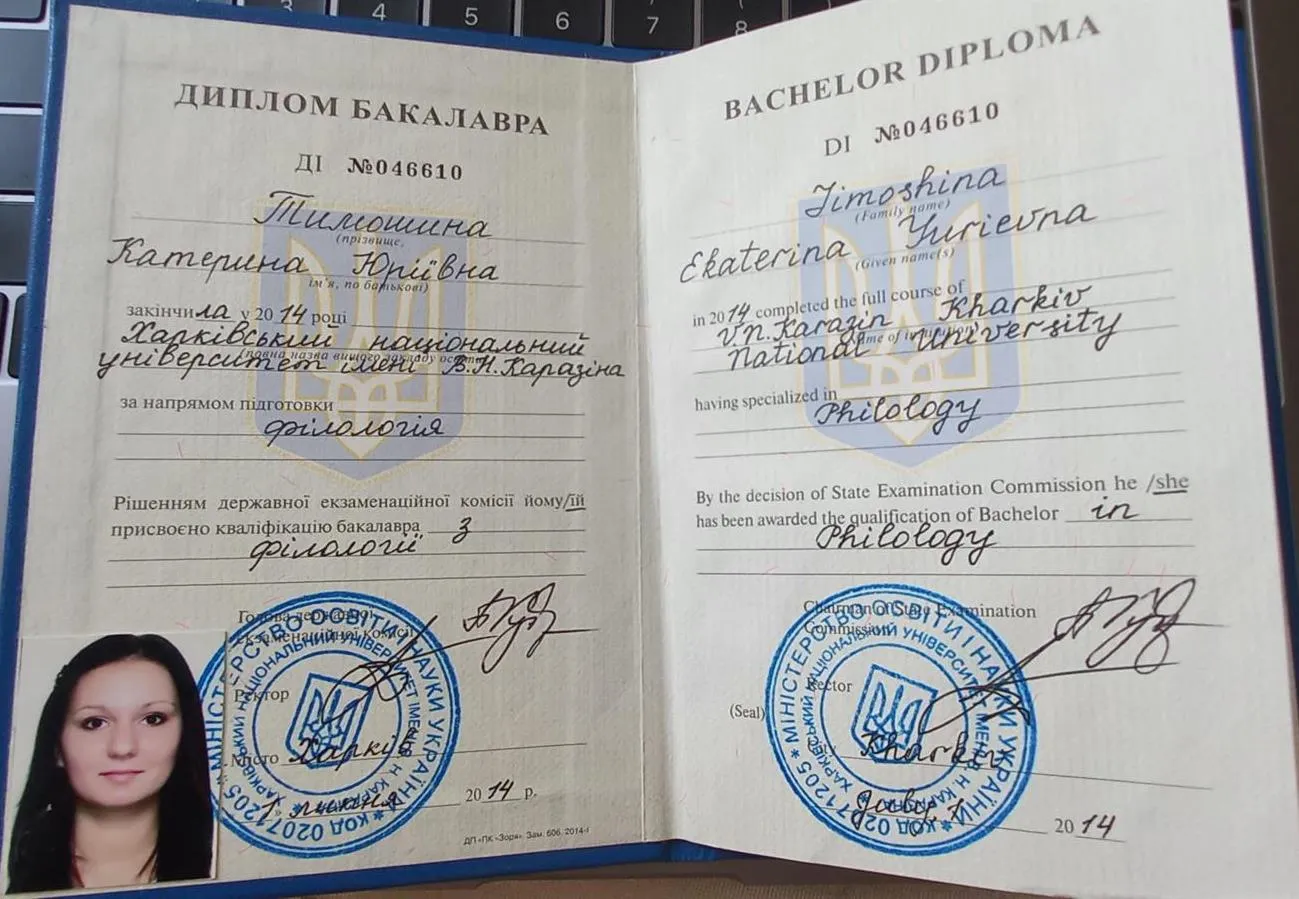 3
4
5
6
7
8
ДИПЛОМ БАКАЛАВРА
ДІ №046610
Тимошина
(прізвище,
Катерина Юріївна
ім'я, по батькові)
закінчила у 2014 році
Харківський національний
(повна назва вищого закладу
університет імені В.Н.Каразіна
за напрямом підготовки
філологія
Рішенням державної екзаменаційної комісії йому/їй
присвоєно кваліфікацію бакалавра з
філології
Голова державної
екзаменаційної комісії
Ректор
Місто Харків
1 липня 2014 р.
МІНІСТЕРСТВО ОСВІТИ І НАУКИ УКРАЇНИ * КОД 02071205 *
ХАРКІВСЬКИЙ НАЦІОНАЛЬНИЙ УНІВЕРСИТЕТ ІМЕНІ В. Н. КАРАЗІНА
ДП «ПК «Зоря». Зам. 606. 2014-I
BACHELOR DIPLOMA
DI №046610
Timoshina
(Family name)
Ekaterina Yurievna
(Given name(s)
in 2014 completed the full course of
V.N.Karazin Kharkiv
National University
having specialized in
Philology
By the decision of State Examination Commission he /she
has been awarded the qualification of Bachelor in
Philology
Chairman of State Examination
Commission
Rector
(Seal)
City Kharkiv
2014
МІНІСТЕРСТВО ОСВІТИ І НАУКИ УКРАЇНИ * КОД 02071205 *
ХАРКІВСЬКИЙ НАЦІОНАЛЬНИЙ УНІВЕРСИТЕТ ІМЕНІ В. Н. КАРАЗІНА